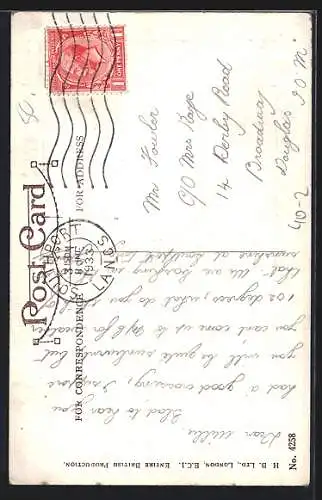 Post Card
FOR CORRESPONDENCE
FOR ADDRESS
SOUTHPORT
LANCS
8 JNE
1933
Dear Willie
Glad to hear you
had a good crossing, I suppose
you will be quite sunburnt but
you can't come up to
102 degrees, what do you
that. We are basking in
sunshine at Southport
Mr Fowler
C/O Mrs Kaye
14 Derby Road
Broadway
Douglas I.O.M.
40-2
H. B. LTD., LONDON, E.C.1. ENTIRE BRITISH PRODUCTION.
No. 4258